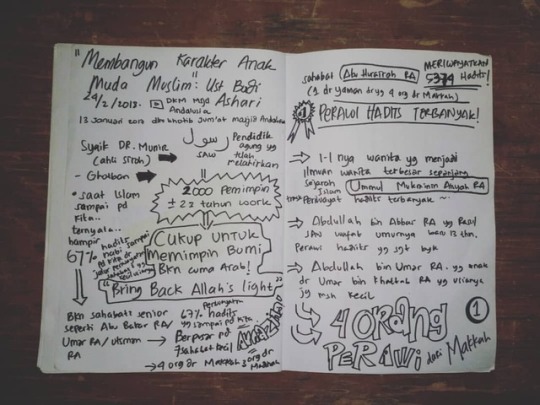 "Membangun Karakter Anak
Muda Muslim" Ust Budi
Ashari
24/2/2018. DKM Mjd
Andalusia
13 Januari 2012 dlm khotib Jum'at masjid Andalusia
Syaik DR. Munir
(ahli siroh)
- Ghadban
رسول
SAW
Pendidik
agung yg
telah
melahirkan
2000 Pemimpin
± 23 tahun work
• saat Islam
sampai pd
kita..
ternyata..
hampir
67% hadits
nabi sampai
pd kita dr
CUKUP UNTUK
MEMIMPIN BUMI
BKN cuma Arab!
"Bring Back Allah's light"
Bkn sahabat senior
seperti Abu Bakar RA/
Umar RA/ Utsman
RA
67% hadits
yg sampai pd kita
Berpusar pd
7 sahabat kecil
AMAZING
→ 4 orang dr Makkah 3 org dr
Madinah
sahabat Abu Hurairah RA
MERIWAYATKAN
5374 Hadits!
(1 dr Yaman dr yg 4 org dr Makkah)
#1 PERAWI HADITS TERBANYAK!
→ 1-1 nya wanita yg menjadi
ilmuan wanita terbesar sepanjang
sejarah
Islam Ummul Mukminin Aisyah RA
Periwayat hadits terbanyak ~
→ Abdullah bin Abbas RA yg Rasul
SAW wafat umurnya baru 13 thn.
Perawi hadits yg sgt byk
→ Abdullah bin Umar RA. yg anak
dr Umar bin Khattab RA yg usianya
jg msh kecil
4 ORANG
PERAWI dari Makkah
1